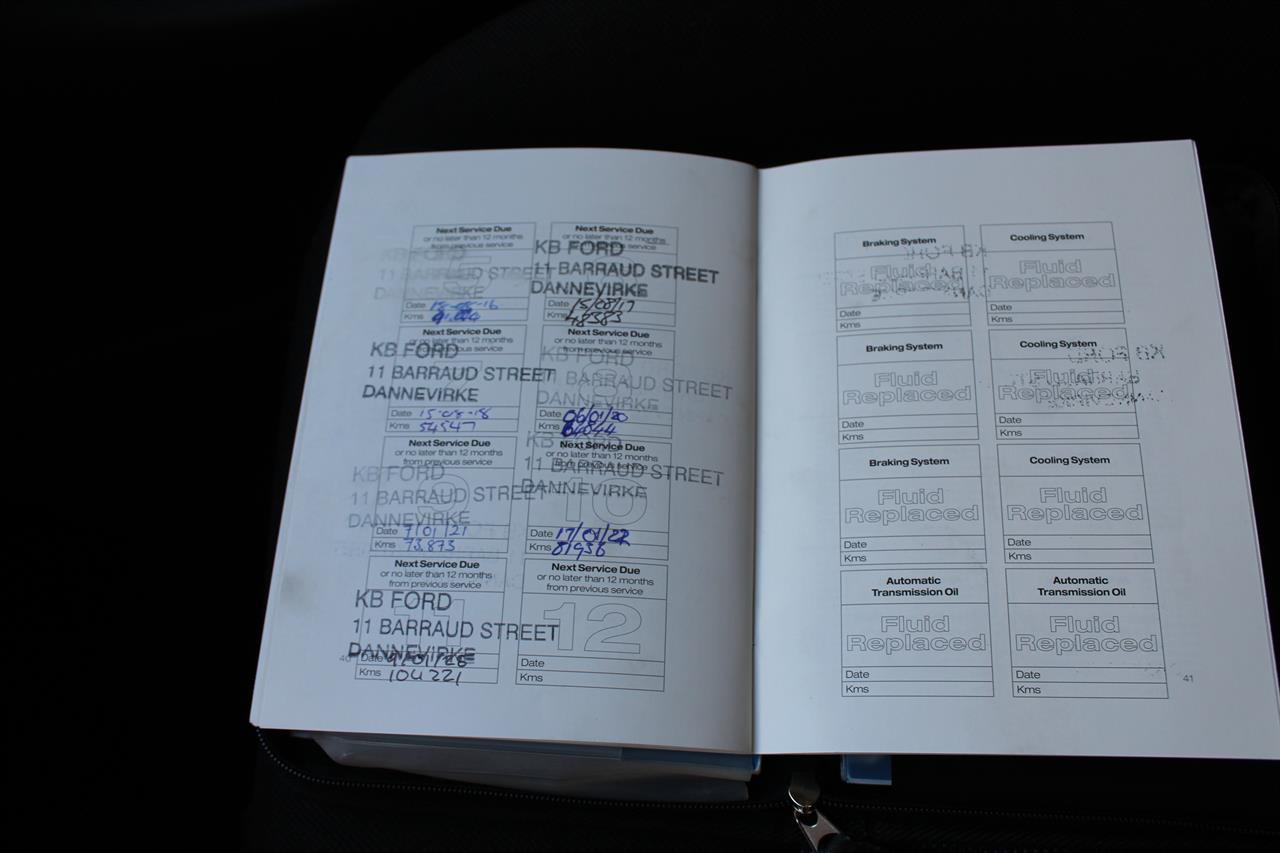 Next Service Due
or no later than 12 months
from previous service
KB FORD
11 BARRAUD STREET
DANNEVIRKE
Date 15-08-16
Kms
Next Service Due
or no later than 12 months
from previous service
KB FORD
11 BARRAUD STREET
DANNEVIRKE
Date 15/08/17
Kms 48383
Next Service Due
or no later than 12 months
from previous service
KB FORD
11 BARRAUD STREET
DANNEVIRKE
Date 15-08-18
Kms 54547
Next Service Due
or no later than 12 months
from previous service
KB FORD
11 BARRAUD STREET
DANNEVIRKE
8
Date 06/01/20
Kms 64844
Next Service Due
or no later than 12 months
from previous service
KB FORD
11 BARRAUD STREET
DANNEVIRKE
9
Date 7/01/21
Kms 73.873
Next Service Due
or no later than 12 months
from previous service
KB FORD
11 BARRAUD STREET
DANNEVIRKE
10
Date 17/01/22
Kms 81936
Next Service Due
or no later than 12 months
from previous service
KB FORD
11 BARRAUD STREET
DANNEVIRKE
11
Date
Kms 104221
Next Service Due
or no later than 12 months
from previous service
12
Date
Kms
40
Braking System
Fluid
Replaced
Date
Kms
Cooling System
Fluid
Replaced
Date
Kms
Braking System
Fluid
Replaced
Date
Kms
Cooling System
Fluid
Replaced
Date
Kms
Braking System
Fluid
Replaced
Date
Kms
Cooling System
Fluid
Replaced
Date
Kms
Automatic
Transmission Oil
Fluid
Replaced
Date
Kms
Automatic
Transmission Oil
Fluid
Replaced
Date
Kms
41